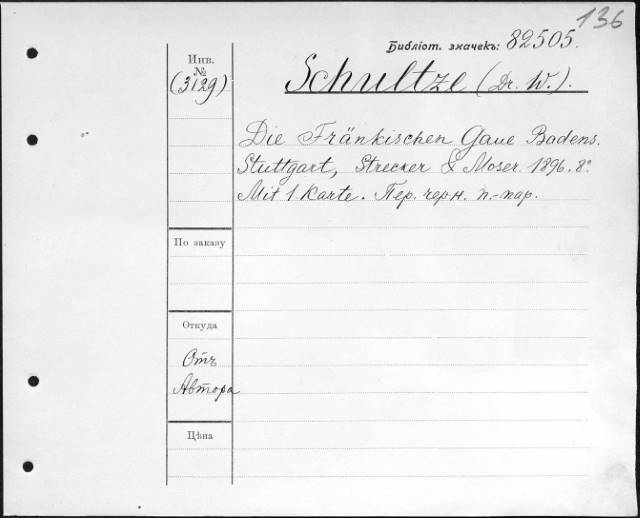 136
Библіот. значекъ: 82505.
Инв. №
(3129)
Schultze (Dr. W.).
Die Fränkischen Gaue Badens.
Stuttgart, Strecker & Moser. 1896. 8º
Mit 1. Karte. Пер. черн. п.-пар.
По заказу
Откуда
Отъ
Автора
Цѣна